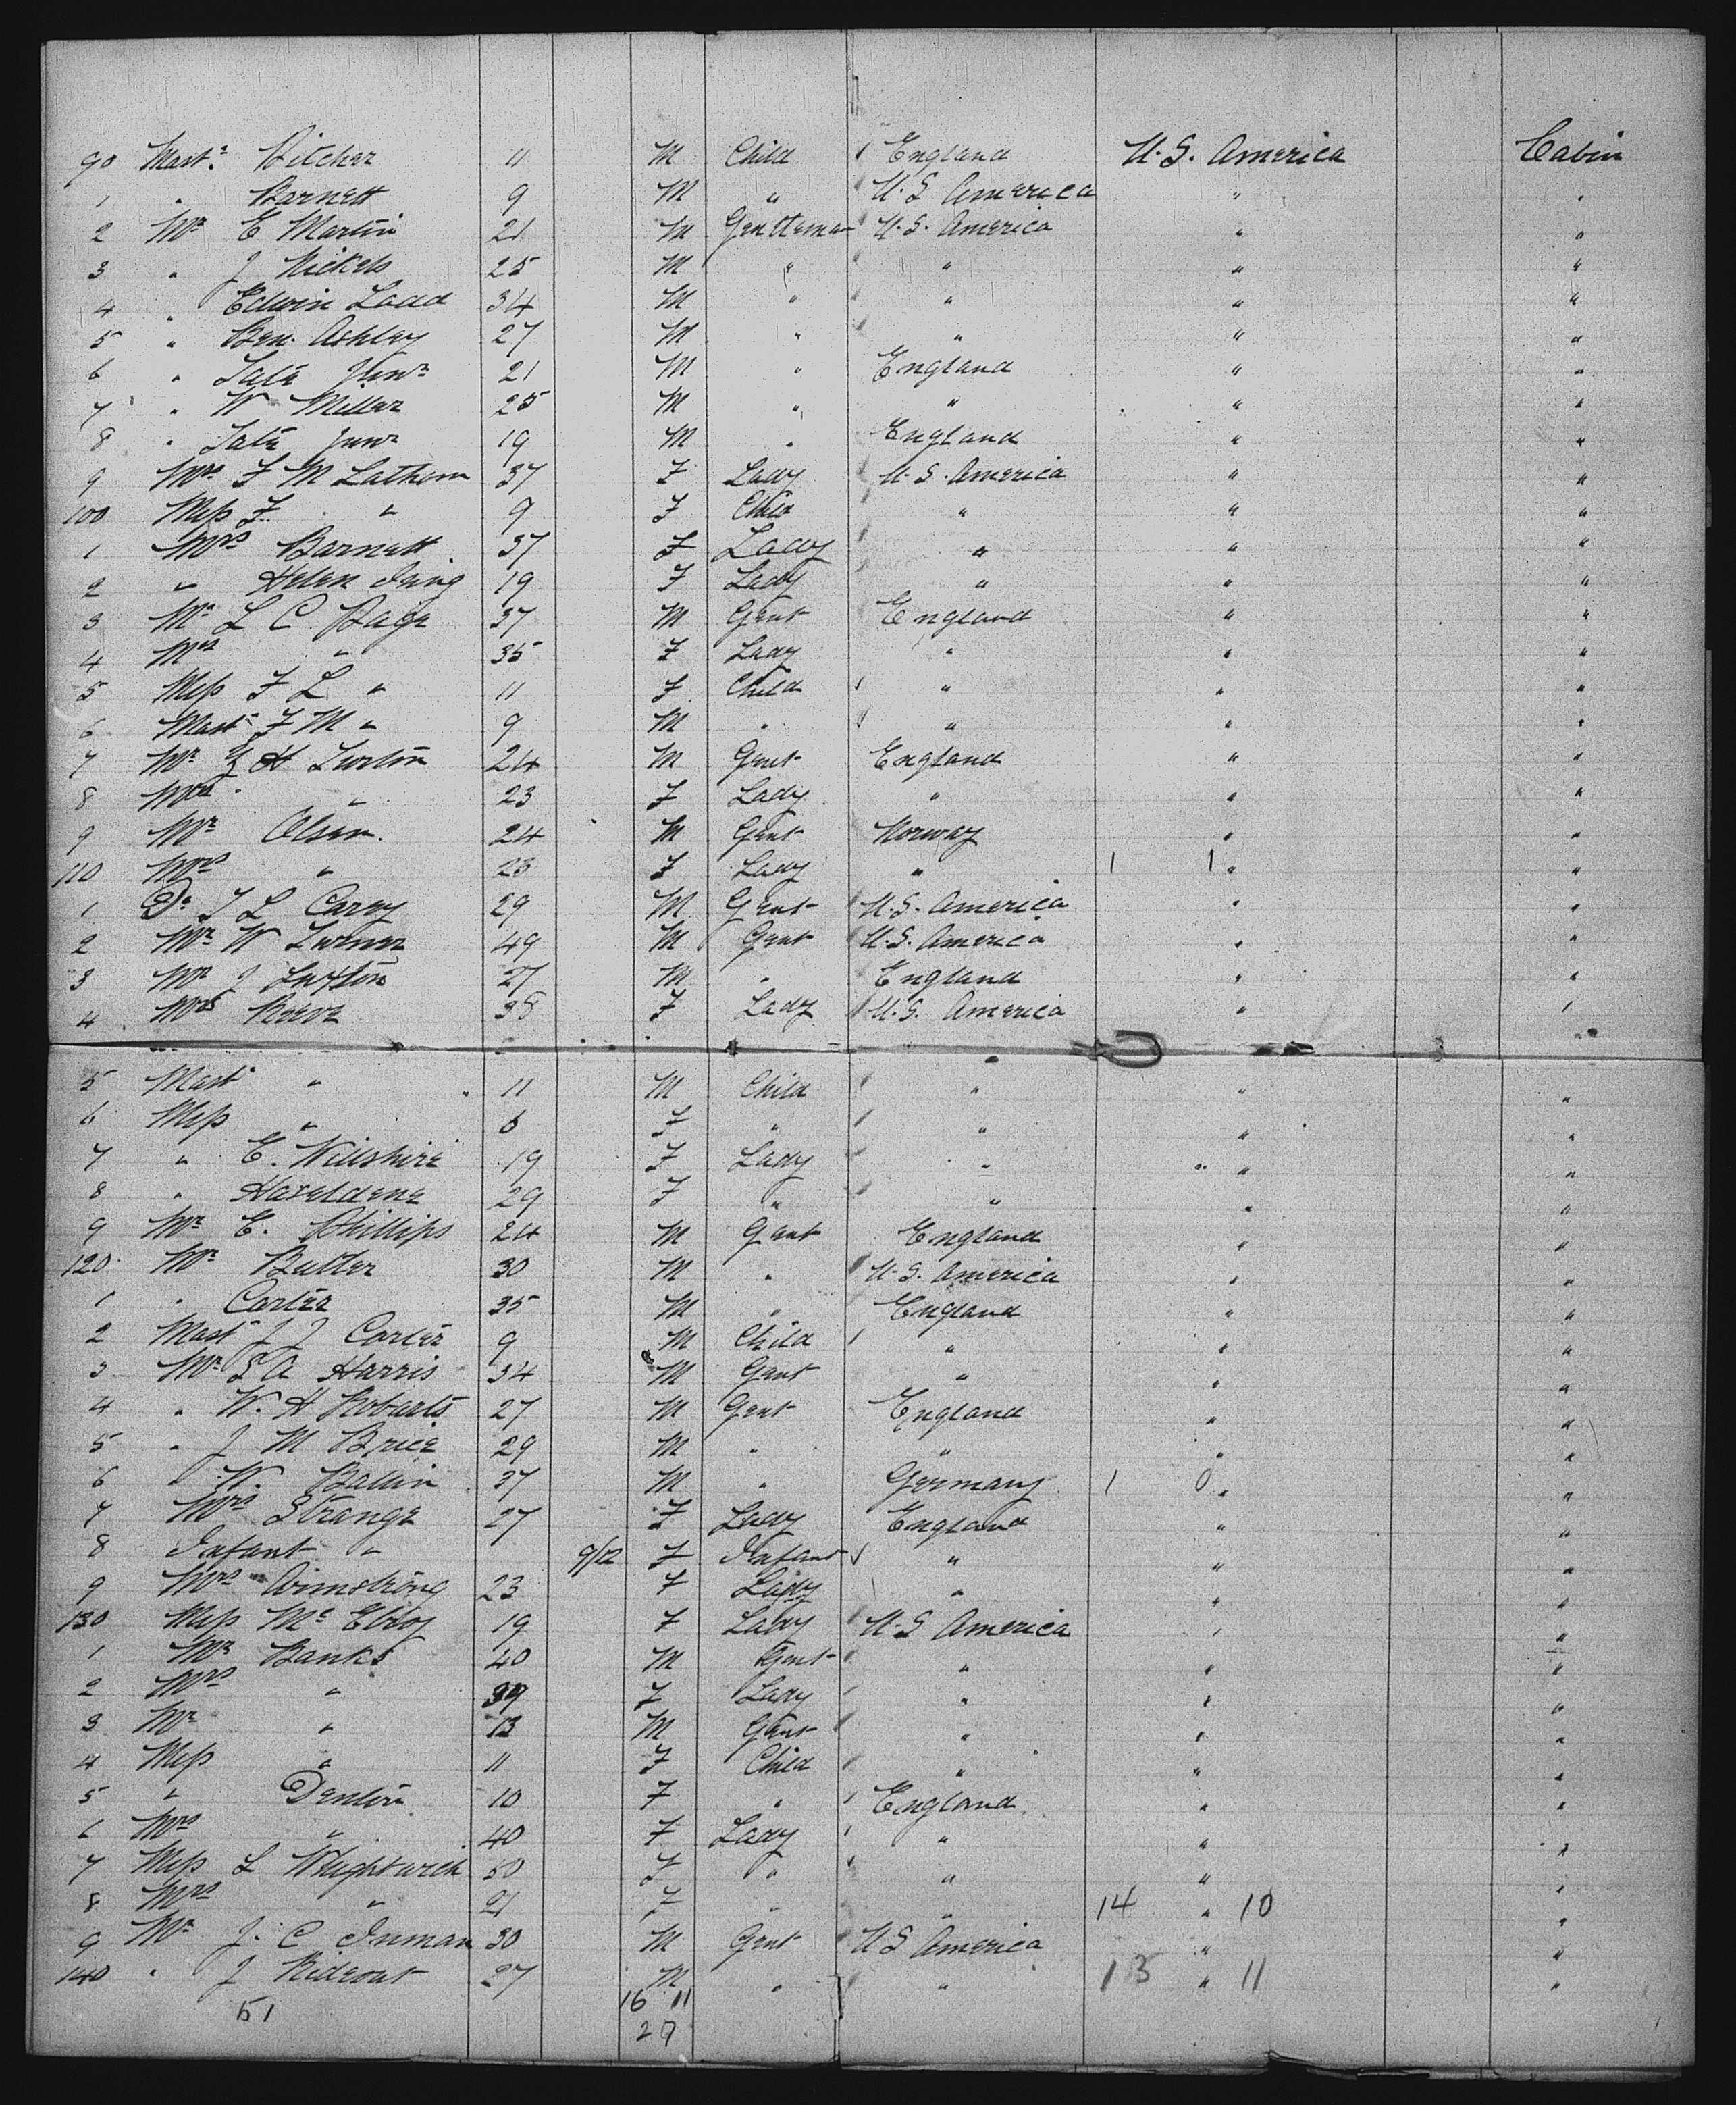 90 Mastr Pitcher 11 M Child England U.S. America Cabin
1 " Barnett 9 M " U.S America " "
2 Mr E Martin 21 M Gentleman U.S. America " "
3 " J Nickels 25 M " " " "
4 " Edwin Ladd 34 M " " " "
5 " Ben. Ashley 27 M " " " "
6 " Tate Junr 21 M " England " "
7 " W Miller 25 M " " " "
8 " Tate Junr 19 M " England " "
9 Mrs F M Lathom 37 F Lady U.S. America " "
100 Miss F. " 9 F Child " " "
1 Mrs Barnett 37 F Lady " " "
2 " Helen 19 F Lady " " "
3 Mr L C Page 37 M Gent England " "
4 Mrs " 35 F Lady " " "
5 Miss F L " 11 F Child " " "
6 Mastr F M " 9 M " " " "
7 Mr H Turton 24 M Gent England " "
8 Mrs " 23 F Lady " " "
9 Mr Olsen. 24 M Gent Norway " "
110 Mrs " 23 F Lady " 1 1 " "
1 Dr L Carey 29 M Gent U.S. America " "
2 Mr W Turner 49 M Gent U.S. America " "
3 Mr J Luxton 27 M " England " "
4 Mrs Reeve 38 F Lady U.S. America " "
5 Mastr " 11 M Child " " "
6 Miss " 6 F " " " "
7 " E. Wilshire 19 F Lady " " "
8 " Haseldene 29 F " " " "
9 Mr E. Phillips 24 M Gent England " "
120 Mr Butler 30 M " U.S. America " "
1 " Carter 35 M " England " "
2 Mastr J J Carter 9 M Child " " "
3 Mr S A Harris 34 M Gent " " "
4 " W. H Robarts 27 M Gent England " "
5 " J M Brice 29 M " " " "
6 " W. Ballin 37 M " Germany 1 0 " "
7 Mrs Strange 27 F Lady England " "
8 Infant " 9/12 F Infant " " "
9 Mrs Armstrong 23 F Lady " " "
130 Miss Mc Elroy 19 F Lady U.S America " "
1 Mr Banks 40 M Gent " " "
2 Mrs " 39 F Lady " " "
3 Mr " 13 M Gent " " "
4 Miss " 11 F Child " " "
5 " Denton 10 F " England " "
6 Mrs " 40 F Lady " " "
7 Miss L Wightwick 50 F " " " "
8 Mrs " 21 F " " 14 " 10 "
9 Mr J. C Inman 30 M Gent U S America " "
140 " J Rideout 27 M " " 13 " 11 "
51 16 11
27